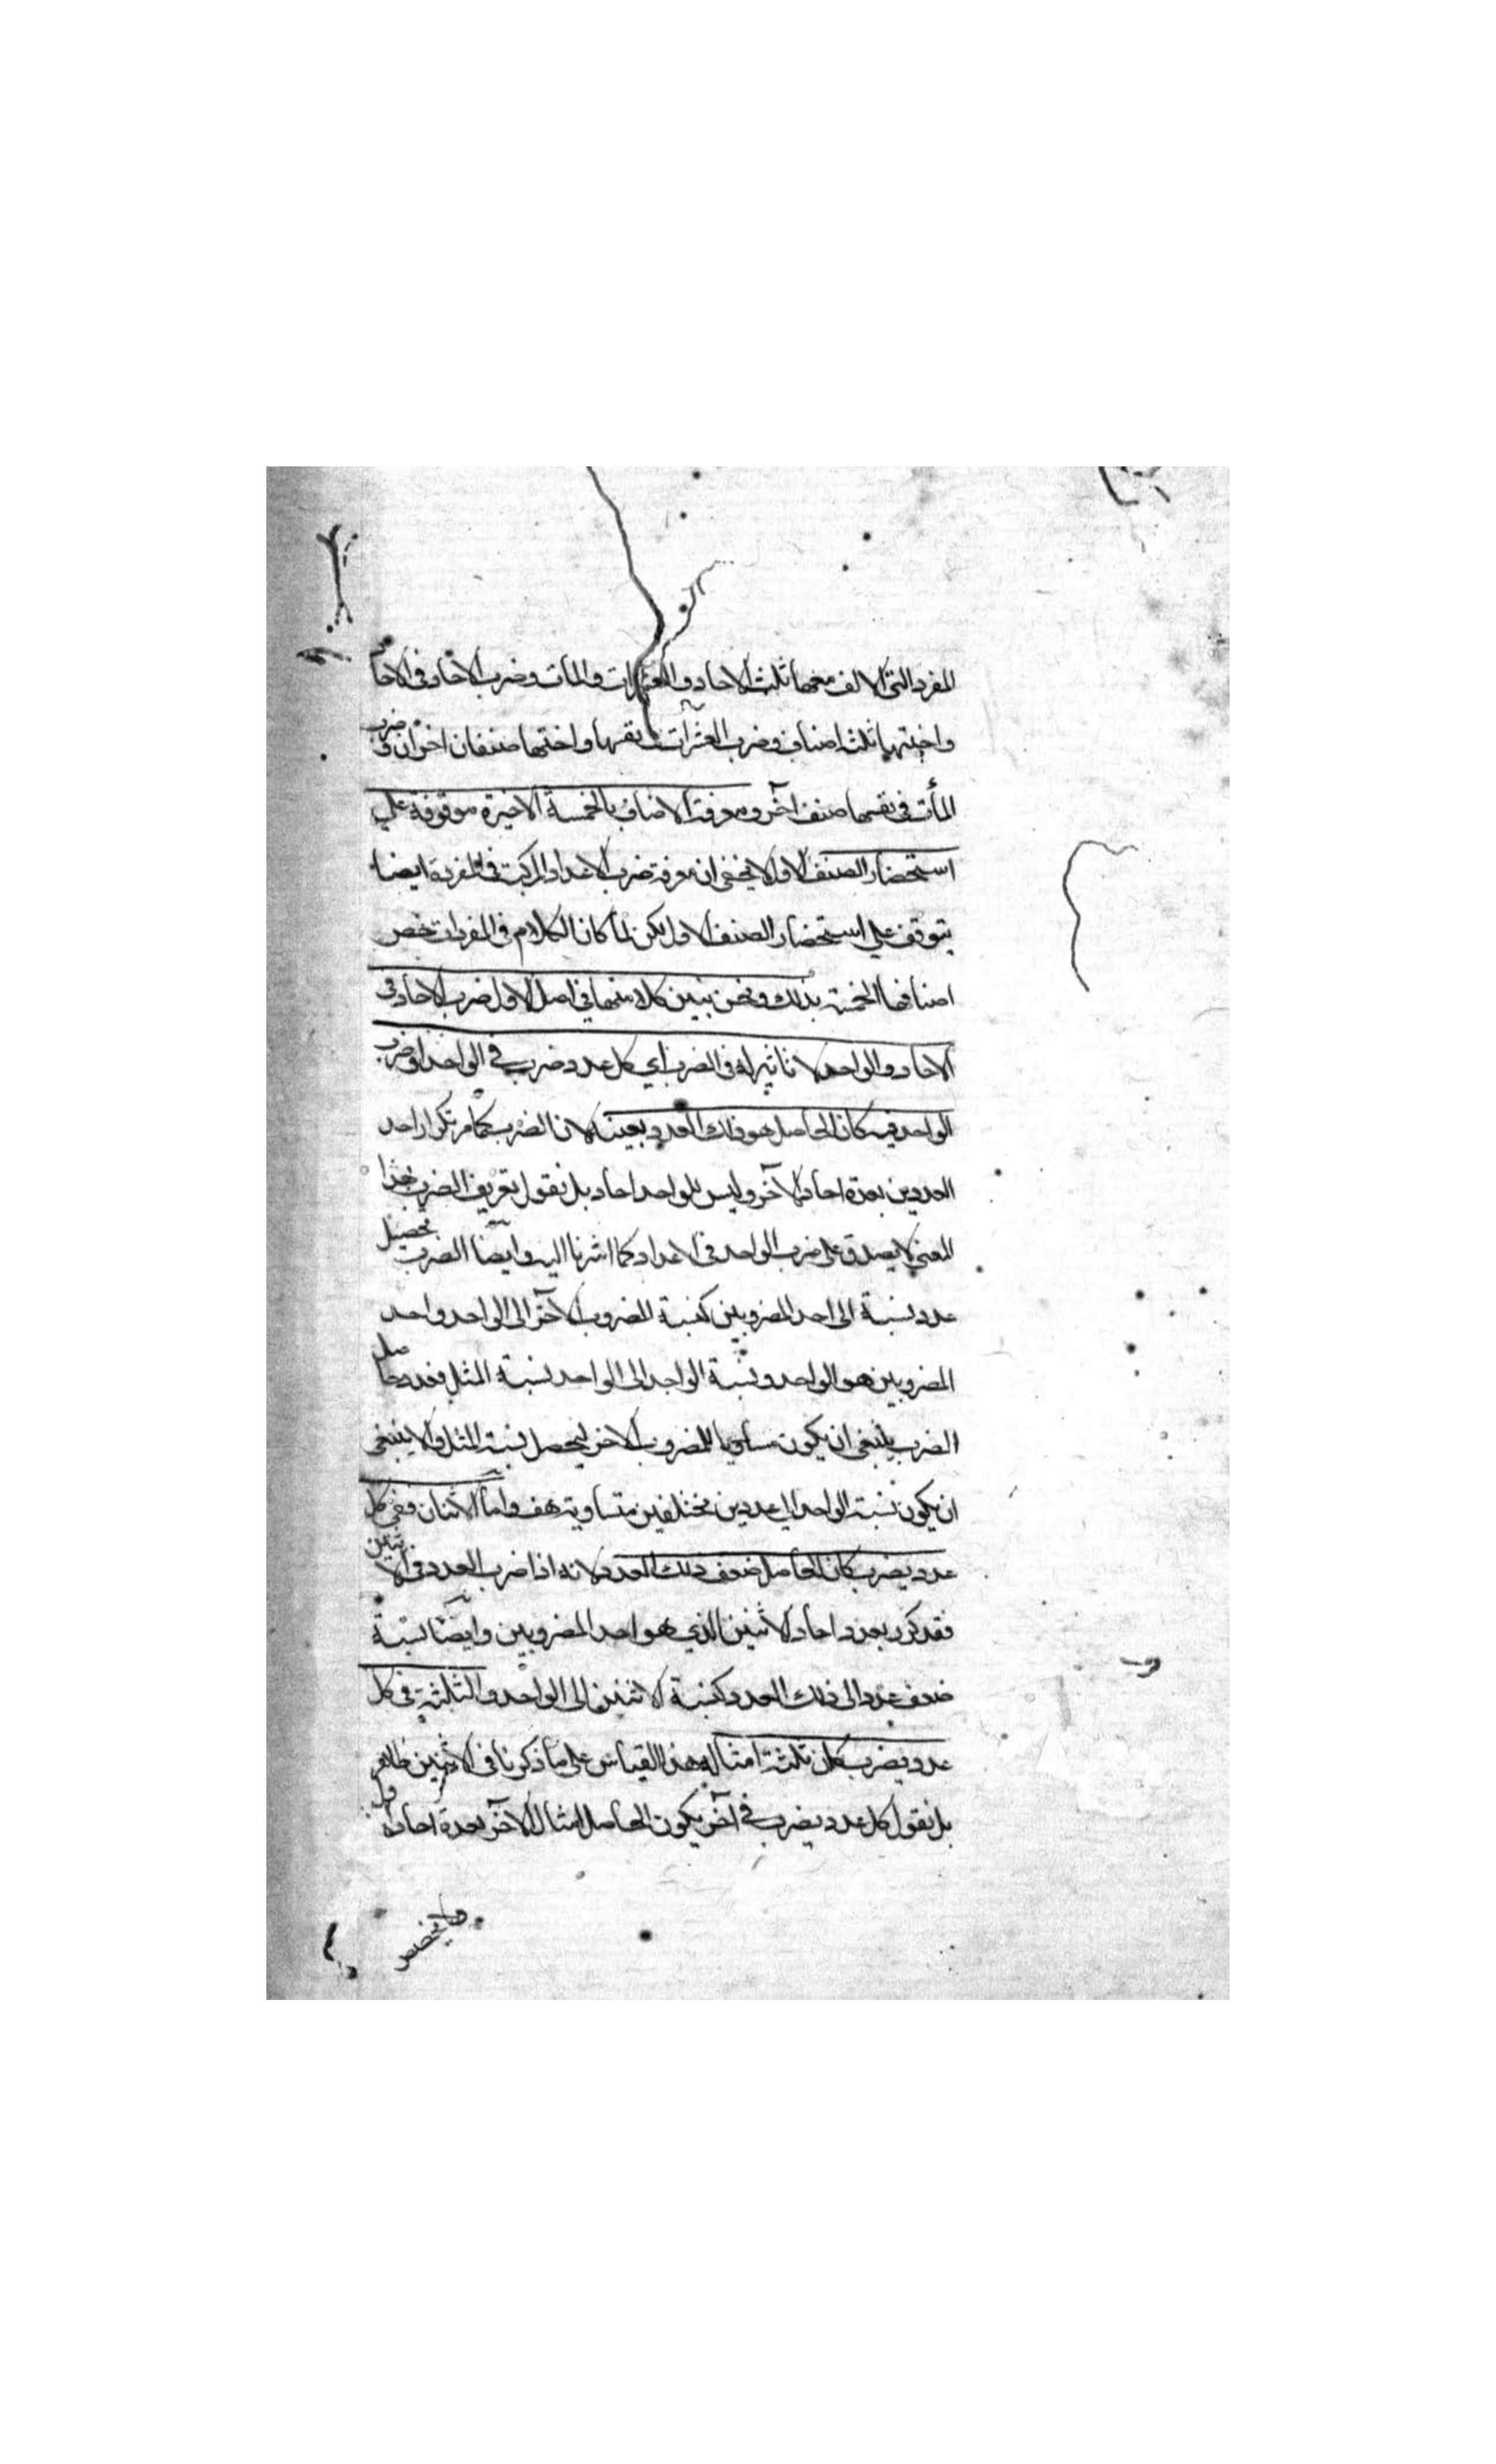 المفرد التى لا الف معها ثلث الاحاد و العشرات و المات و ضرب الاحاد فى الاحاد
واختيها ثلث اصناف و ضرب العشرات فى نفسها و اختها صنفان اخران و ضرب
المأت فى نفسها صنف آخر و معرفة الاصناف بالخمسة الاخيرة موقوفة علي
استحضار الصنف الاول لا يخفى ان معرفة ضرب الاعداد المركبة فى المفردة ايضا
يتوقف علي استحضار الصنف الاول لكن لما كان الكلام فى المفردات خص
اصنافها الخمسة بذلك و نحن نبين كلا منها فى اصل الاول ضرب الاحاد فى
الاحاد و الواحد لا تاثير له فى الضرب اي كل عدد ضرب فى الواحد او ضرب
الواحد فيه كان الحاصل هو ذلك العدد بعينه لان الضرب كما مر تكرار احد
العددين بعدة احاد الآخر و ليس للواحد احاد بل نقول تعريف الضرب بهذا
المعنى لا يصدق على ضرب الواحد فى الاعداد كما اشرنا اليه و ايضا الضرب تحصيل
عدد نسبة الى احد المضروبين كنسبة المضروب الآخر الى الواحد و احد
المضروبين هو الواحد و نسبة الواحد الى الواحد نسبة المثل فعدد حاصل
الضرب ينبغى ان يكون مساويا للمضروب الاخر ليحصل نسبة المثل و الا ينبغى
ان يكون نسبة الواحد الي عددين مختلفين متساوية هف و اما الاثنان ففى كل
عدد يضرب كان الحاصل ضعف ذلك العدد لانه اذا ضرب العدد فى الاثنين
فقد كرر بعدد احاد الاثنين الذي هو احد المضروبين و ايضا نسبة
ضعف عدد الى ذلك العدد كنسبة الاثنين الى الواحد و الثلثة فى كل
عدد يضرب كان ثلثة امثاله هذا القياس على ما ذكرنا فى الاثنين ظاهر
بل نقول كل عدد يضرب فى آخر يكون الحاصل امثال الآخر بعدة احاد الاول